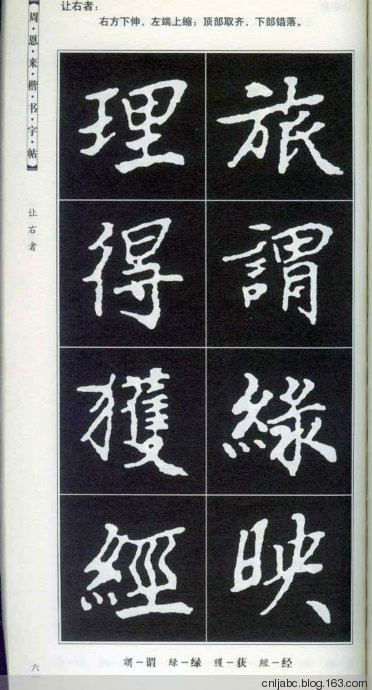 让右者：
右方下伸、左端上缩；顶部取齐、下部错落。
【周·恩·来·楷·书·字·帖】
让右者
旅謂緑映
理得獲經
謂－谓 緑－绿 獲－获 經－经
六
cnljabc.blog.163.com